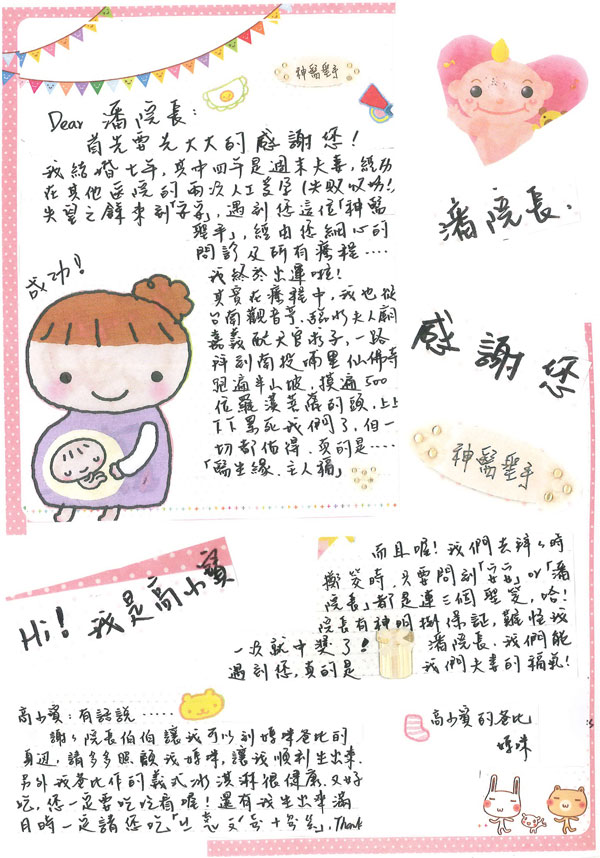 神醫聖手
Dear 潘院長:
首先要先大大的感謝您!
我結婚七年,其中四年是週末夫妻,經歷
在其他医院的兩次人工受孕(失敗哎喲!)
失望之餘來到「安安」,遇到您這位「神醫
聖手」,經由您細心的
問診及所有療程....
我終於出運啦!
其實在療程中,我也從
台南觀音亭、臨水夫人廟
嘉義
求子,一路
拜到南投埔里仙佛寺
跑遍半山坡,摸遍500
位羅漢菩薩的頭,上上
下下累死我們了,但一
切都值得.真的是....
「醫生緣.主人福」
成功!
潘院長.
感謝您
神醫聖手
Hi! 我是高小寶
而且喔!我們去拜拜時
擲筊時,只要問到「安安」or「潘
院長」都是連三個聖筊,哈!
院長有神明掛保証,難怪我
一次就中獎了! 潘院長.我們能
遇到您,真的是 我們夫妻的福氣!
高小寶:有話說.....
謝謝院長伯伯讓我可以到媽咪爸比的
身边,請多多照顧我媽咪,讓我順利生出來.
另外我爸比作的義式冰淇淋很健康又好
吃,您一定要吃吃看喔!還有我生出來滿
月時一定請您吃
Thank
高小寶的爸比
媽咪